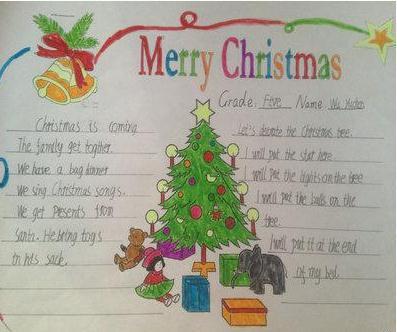 Merry Christmas
Grade: Five Name
Christmas is coming
The family get togther.
We have a bag dinner
We sing Christmas songs.
We get presents from
Santa. He bring toys
in his sack.
Let's decorate the Christmas tree.
I will put the star here
I will put the lights on the tree
I will put the balls on the
tree
I will put it at the end
of my bed.